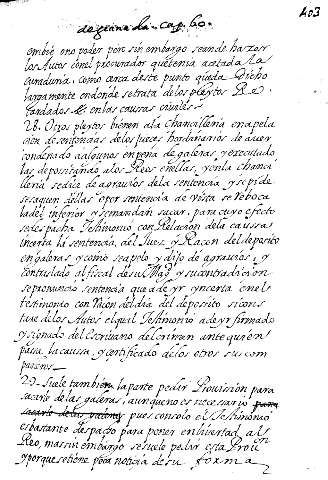 de granada. cap. 60.
403
embie eno poder pero sin embargo se an de hazer
los Autos con el procurador que tenia acetada la
curaduria, como cerca deste punto queda Dicho
largamente en donde se trata de los pleytos Re
tardados en las causas criuiles
28. Otros pleytos bienen a la Chancilleria en apela
cion de sentencias de los jueces hordinarios de auer
condenado a algunos en pena de galeras, y executado
las depositando a los Reos en ellas, y en la chanci
lleria se dice de agrauios de la sentencia, y se pide
se saquen dellas o por sentencia de vista se reboca
la del inferior y se mandan sacar, para cuyo efecto
se despacha Testimonio con Relacion de la caussa
incerta la sentencia, del Juez, y Raçon del deposito
en galeras, y como se apelo y dijo de agrauios, y
con traslado al fiscal de su Magd y su contradicion
se pronuncio sentencia que a de yr yncerta en el
testimonio con Raçon del dia del deposito si cons
tare de los Autos el qual Testimonio a de yr firmado
y signado del Escriuano del crimen ante quien
passa la caussa y certificado de los otros sus com
pañeros
29. Suele tambien la parte pedir Prouision para
sacarlo de las galeras, aunque no es necesario
pues con solo el testimonio
es bastante despacho para poner en libertad al
Reo, mas sin embargo se suele pedir esta Proui
y porque se tiene poca noticia de su forma